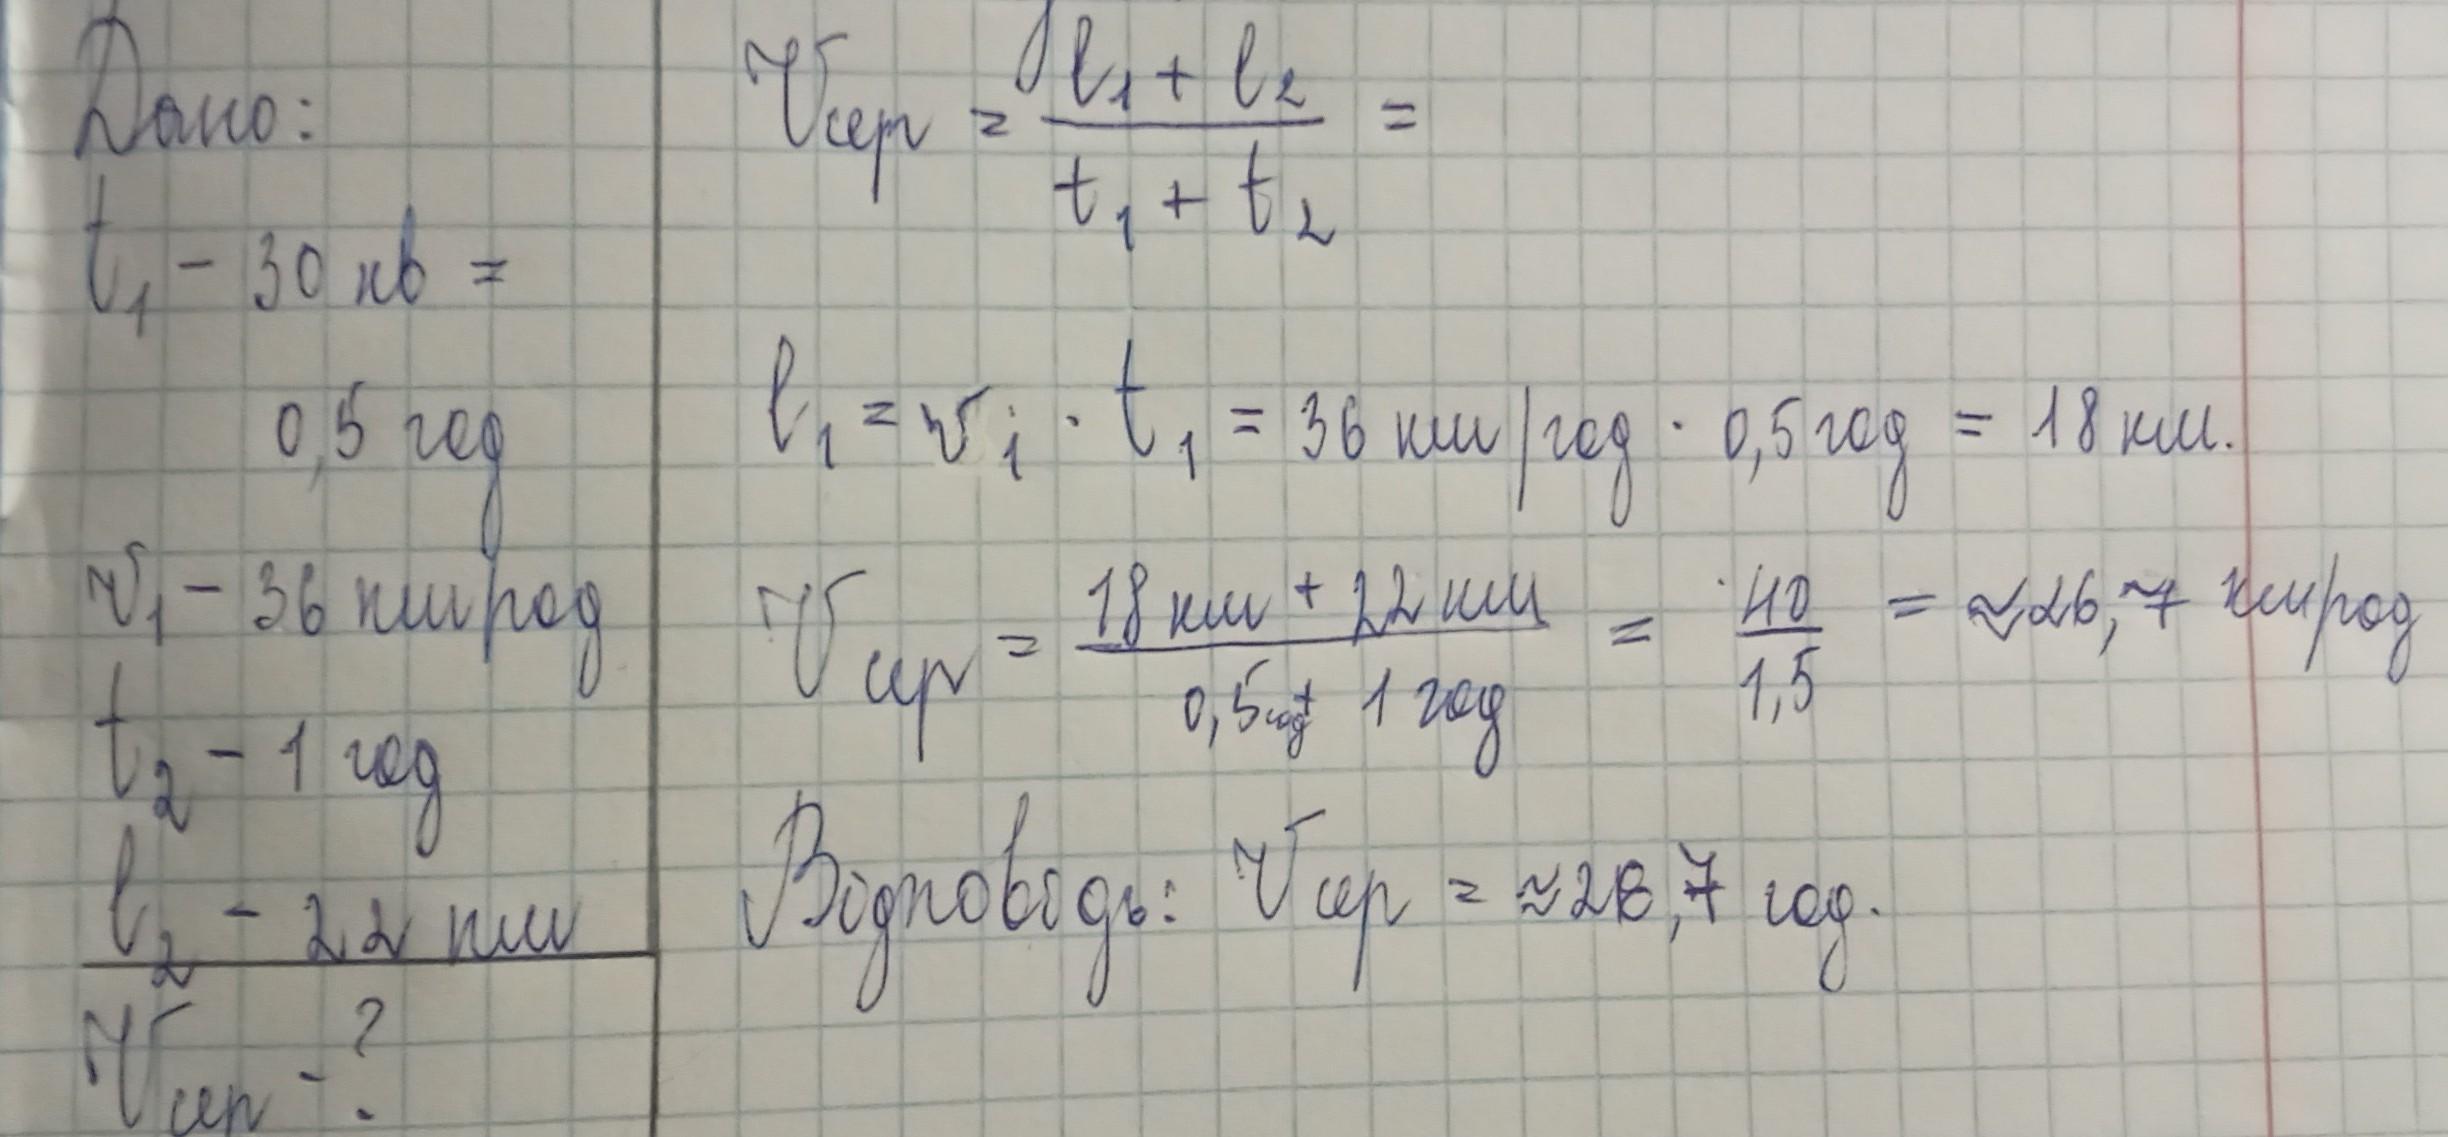 Дано:
t₁ - 30 хв =
0,5 год
v₁ - 36 км/год
t₂ - 1 год
l₂ - 22 км
Vсер - ?
Vсер = (l₁ + l₂)/(t₁ + t₂) =
l₁ = v₁ · t₁ = 36 км/год · 0,5 год = 18 км.
Vсер = (18 км + 22 км)/(0,5год + 1 год) = 40/1,5 = ≈26,7 км/год
Відповідь: Vсер = ≈26,7 год.